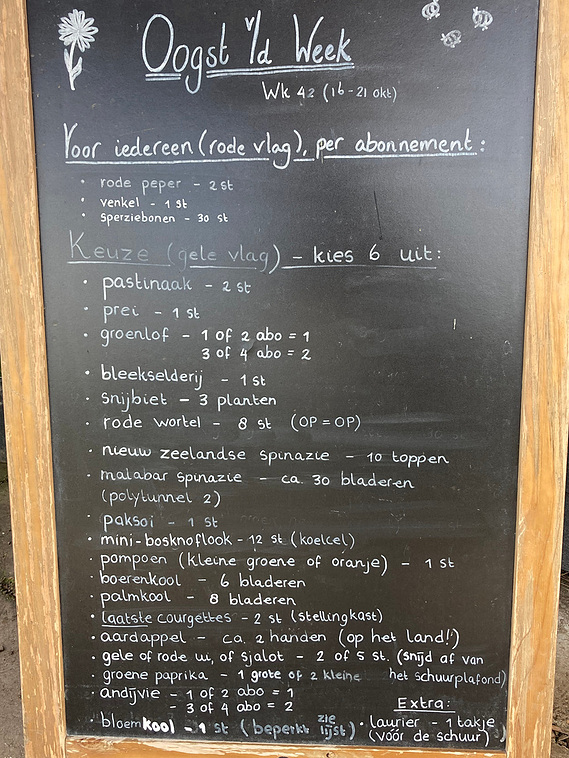 Oogst v/d Week
Wk 42 (16-21 okt)
Voor iedereen (rode vlag), per abonnement:
• rode peper - 2 st
• venkel - 1 st
• sperziebonen - 30 st
Keuze (gele vlag) - kies 6 uit:
• pastinaak - 2 st
• prei - 1 st
• groenlof - 1 of 2 abo = 1
3 of 4 abo = 2
• bleekselderij - 1 st
• snijbiet - 3 planten
• rode wortel - 8 st (OP = OP)
• nieuw zeelandse spinazie - 10 toppen
• malabar spinazie - ca. 30 bladeren
(polytunnel 2)
• paksoi - 1 st
• mini-bosknoflook - 12 st (koelcel)
pompoen (kleine groene of oranje) - 1 st
• boerenkool - 6 bladeren
• palmkool - 8 bladeren
• laatste courgettes - 2 st (stellingkast)
• aardappel - ca. 2 handen (op het land!)
• gele of rode ui, of sjalot - 2 of 5 st. (snijd af van
het schuurplafond)
• groene paprika - 1 grote of 2 kleine
• andijvie - 1 of 2 abo = 1
- 3 of 4 abo = 2
• bloemkool - 1 st (beperkt zie lijst)
Extra:
• laurier - 1 takje
(vóór de schuur)